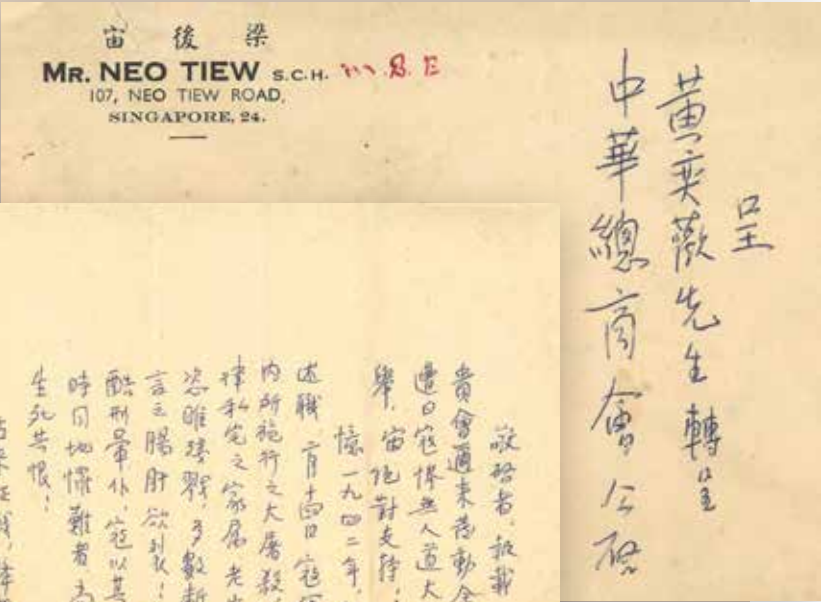 宙 後 梁
MR. NEO TIEW S.C.H. M.B.E
107, NEO TIEW ROAD,
SINGAPORE, 24.
呈
黃奕歡先生轉呈
中華總商會公啓
敬啓者,報載
貴會邇來發動全
遭日寇慘無人道大
舉,宙絕對支持,
憶一九四二年,
述職,肓 日寇
內所施行之大屠殺,
律私宅之家屬老少
恣睢殘戮,多數
言之腸肝欲裂!
酷刑 仆,寇以其
時同地罹難者
生死共恨!